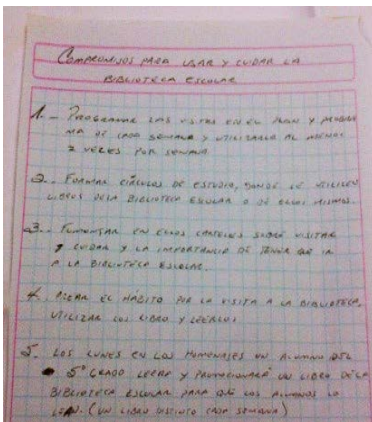 COMPROMISOS PARA USAR Y CUIDAR LA
BIBLIOTECA ESCOLAR
1.- PROGRAMAR LAS VISITAS EN EL PLAN Y PROGRA
MA DE CADA SEMANA Y UTILIZARLA AL MENOS
2 VECES POR SEMANA
2.- FORMAR CÍRCULOS DE ESTUDIO, DONDE SE UTILICEN
LIBROS DE LA BIBLIOTECA ESCOLAR O DE ELLOS MISMOS.
3.- FOMENTAR EN ELLOS CARTELES SOBRE VISITAR
Y CUIDAR Y LA IMPORTANCIA DE TENER QUE IR
A LA BIBLIOTECA ESCOLAR.
4.- CREAR EL HÁBITO POR LA VISITA A LA BIBLIOTECA,
UTILIZAR LOS LIBRO Y LEERLOS
5.- LOS LUNES EN LOS HOMENAJES UN ALUMNO DEL
5° GRADO LEERA Y PROMOCIONARÁ UN LIBRO DE LA
BIBLIOTECA ESCOLAR PARA QUE LOS ALUMNOS LO
LEAN. (UN LIBRO DISTINTO CADA SEMANA)